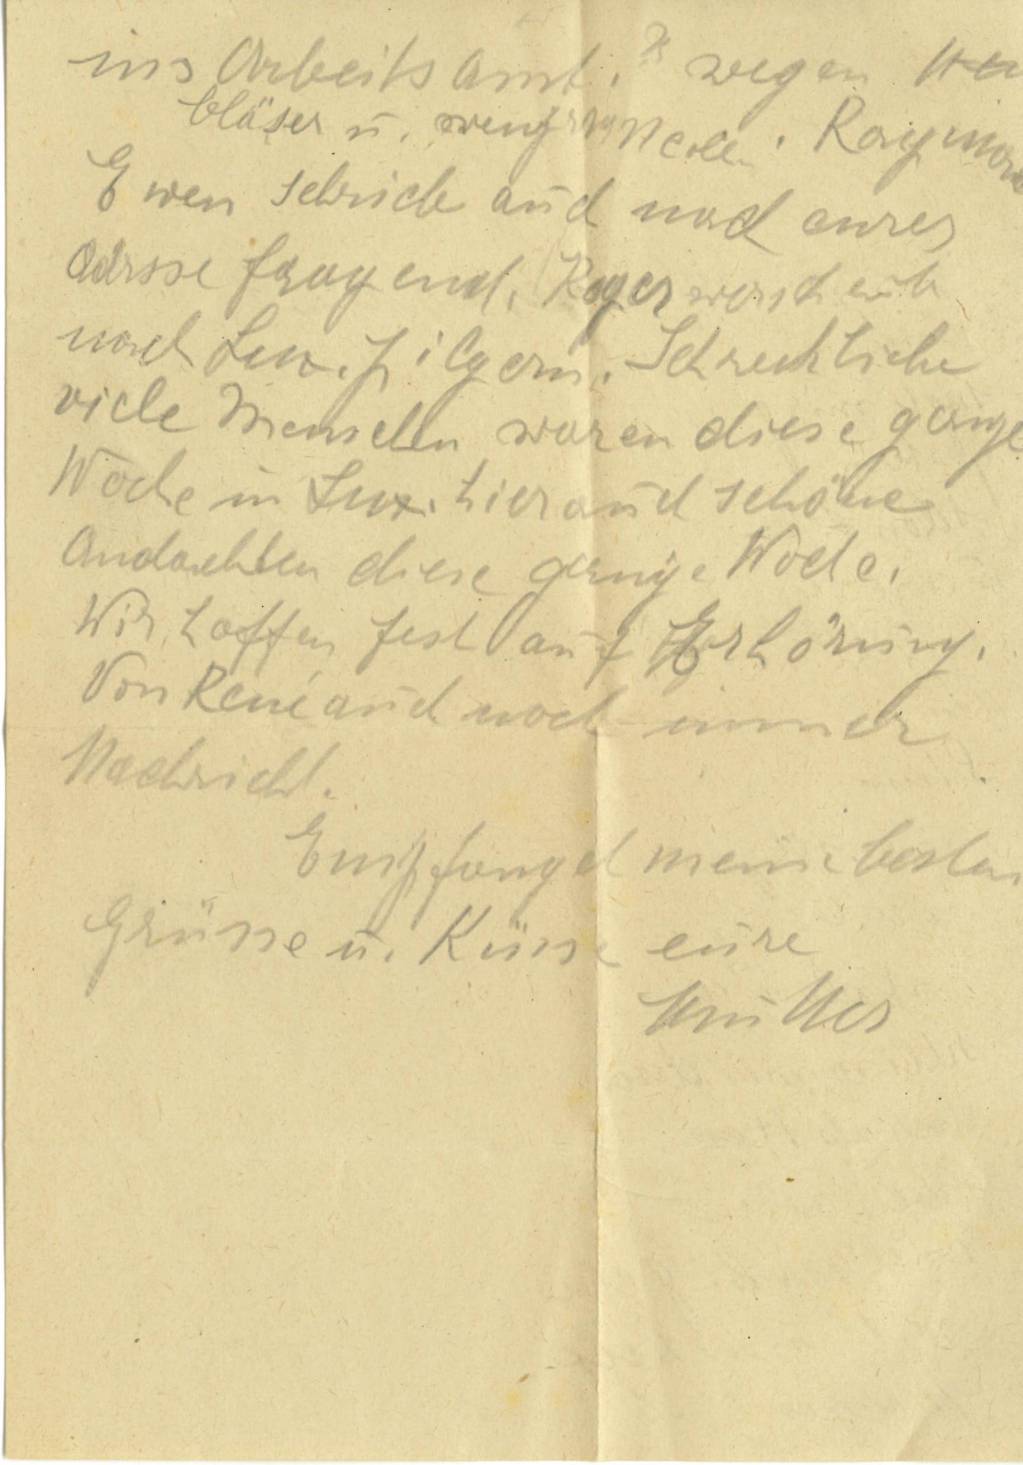 ins Arbeitsamt. wegen Heu
bläser u.
Ewen schrieb auch nach eurer
Adrsse fragend. Roger
nach Lux. pilgern. Schreckliche
viele Menschen waren diese ganze
Woche in Lux. hier auch schöne
Andachten diese ganze Woche.
Wir hoffen fest auf Erhörung.
Von René auch noch immer
Nachricht.
Empfanget meine besten
Grüsse u. Küsse eure
Mutter